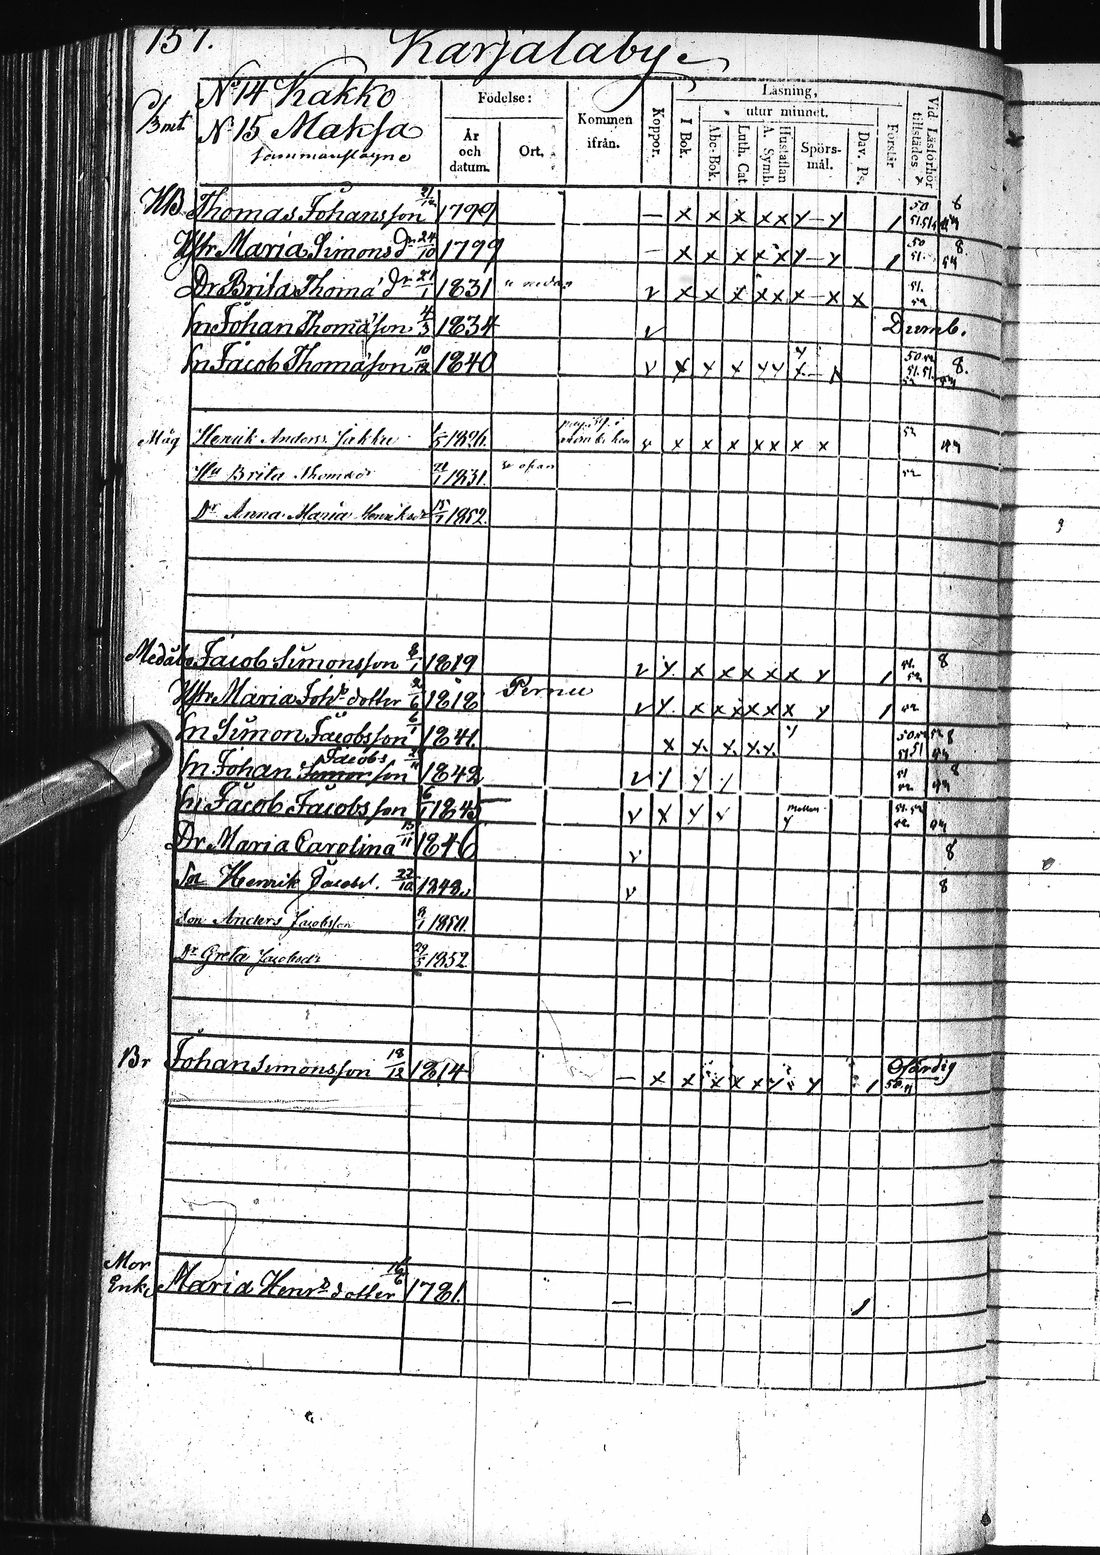 157.
Karjalaby
No 14 Kakko
No 15 Maksa
sammanslagne
Födelse:
År och datum.
Ort.
Kommen ifrån.
Koppor.
Läsning,
utur minnet.
I Bok.
Abc-Bok.
Luth. Cat.
A. Symb.
Hustaflan
Spörs-mål.
Dav. Ps.
Förstår
Vid Läsförhör tillstädes
HB Thomas Johansson 21/12 1799 — x x x x x y — y 1 50 8
Hstr Maria Simons dr 24/10 1799 — x x x x x y — y 1 50 51. 8.
Dr Brita Thoma' dr 21/1 1831 v x x x x x x — x x 51. 52
Sn Johan Thomasson 4/3 1834 v Dumb.
Sn Jacob Thomasson 10/12 1840 v x y x y y x 8.
Måg Henrik Anders. Jakku 1/5 1826. x x x x x x x 52
Hu Brita Thomasdr 21/1 1831. se ofvan 52
Dr Anna Maria Henriksdr 1852.
Jacob Simonsson 8/1 1819 v y. x x x x x y 1 51. 52. 8
Hstr Maria Joh. dotter 2/6 1818 Pernu v y. x x x x x x y 1 52
Sn Simon Jacobsson 6/1 1841. x x. x. x x. 8
Sn Johan Jacobsson 1842 v 8
Sn Jacob Jacobsson 6/1 1845 v x y v
Dr Maria Carolina 15/11 1846 v 8
Son Henrik Jacobs. 22/10 1848. v 8
Son Anders Jacobsson 1850.
Dr Greta Jacobsdr 29/5 1852
Br Johan Simonsson 18/12 1814 — x x x x x y y 1 Ofärdig
Mor
Enka Maria Henr. dotter 16/6 1781. — 1